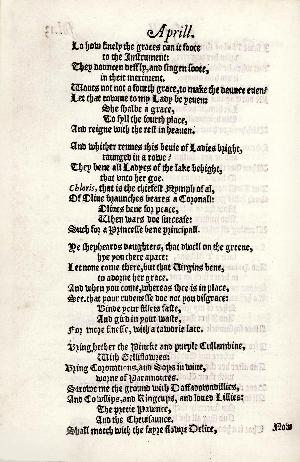 Aprill.
Lo how finely the graces can it foote
to the Instrument:
They dauncen deffly, and singen soote,
in their meriment.
Wants not a fourth grace, to make the daunce even?
Let that rowme to my Lady be yeven:
She shalbe a grace,
To fyll the fourth place,
And reigne with the rest in heaven.
And whither rennes this bevie of Ladies bright,
raunged in a rowe?
They bene all Ladyes of the lake behight,
that unto her goe.
Chloris, that is the chiefest Nymph of al,
Of Olive braunches beares a Coronall:
Olives bene for peace,
When wars doe surcease:
Such for a Princesse bene principall.
Ye shepheards daughters, that dwell on the greene,
hye you there apace:
Let none come there, but that Virgins bene,
to adorne her grace.
And when you come, whereas shee is in place,
See, that your rudenesse doe not you disgrace:
Binde your fillets faste,
And gird in your waste,
For more finesse, with a tawdrie lace.
Bring hether the Pincke and purple Cullambine,
With Gelliflowres:
Bring Coronations, and Sops in wine,
worne of Paramoures.
Strowe me the ground with Daffadowndillies,
And Cowslips, and Kingcups, and loved Lillies:
The pretie Pawnce,
And the Chevisaunce,
Shall match with the fayre flowre Delice,
Now